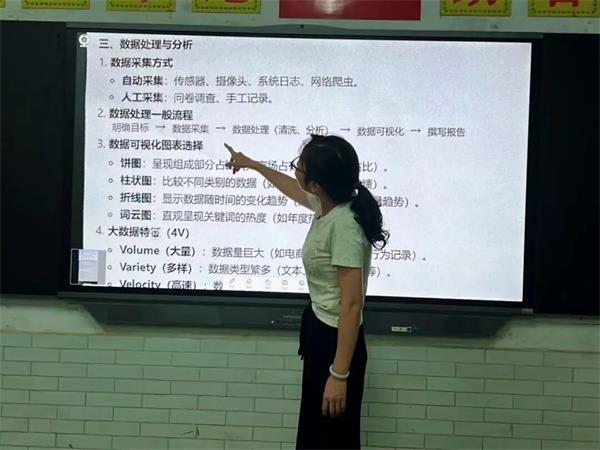 三、数据处理与分析
1. 数据采集方式
自动采集：传感器、摄像头、系统日志、网络爬虫。
人工采集：问卷调查、手工记录。
2. 数据处理一般流程
明确目标 → 数据采集 → 数据处理（清洗、分析） → 数据可视化 → 撰写报告
3. 数据可视化图表选择
饼图：呈现组成部分占 比）。
柱状图：比较不同类别的数据（ 绩）。
折线图：显示数据随时间的变化趋势（ 趋势）。
词云图：直观呈现关键词的热度（如年度
4. 大数据特征（4V）
Volume（大量）：数据量巨大（如电商 行为记录）。
Variety（多样）：数据类型繁多（文本、 等）。
Velocity（高速）：数